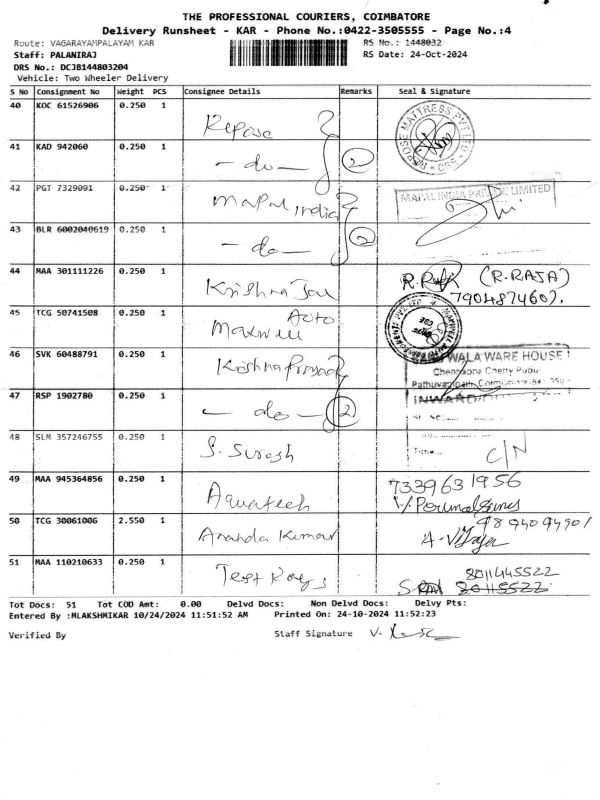 THE PROFESSIONAL COURIERS, COIMBATORE
Delivery Runsheet - KAR - Phone No.:0422-3505555 - Page No.:4
Route: VAGARAYAMPALAYAM KAR
RS No.: 1448032
Staff: PALANIRAJ
RS Date: 24-Oct-2024
DRS No.: DCJB144803204
Vehicle: Two Wheeler Delivery
S No Consignment No Weight PCS Consignee Details Remarks Seal & Signature
40 KOC 61526906 0.250 1 Repose
REPOSE MATTRESS PVT LTD
41 KAD 942060 0.250 1 - do - 2
42 PGT 7329091 0.250 1 Mapal india
MAPAL INDIA PRIVATE LIMITED
43 BLR 6002040619 0.250 1 - do - 2
44 MAA 301111226 0.250 1 Krishna (R.RAJA)
7904874607.
45 TCG 50741508 0.250 1 Maxwell Auto
46 SVK 60488791 0.250 1 Krishna Prasad
WALA WARE HOUSE
47 RSP 1902780 0.250 1 - do - 2
INWARD
48 SLM 357246755 0.250 1 S. Suresh C/N
49 MAA 945364856 0.250 1 Aquatech 7339631956
50 TCG 30061006 2.550 1 Ananda Kumar
51 MAA 110210633 0.250 1 8011445522
Tot Docs: 51 Tot COD Amt: 0.00 Delvd Docs: Non Delvd Docs: Delvy Pts:
Entered By :MLAKSHMIKAR 10/24/2024 11:51:52 AM Printed On: 24-10-2024 11:52:23
Verified By Staff Signature